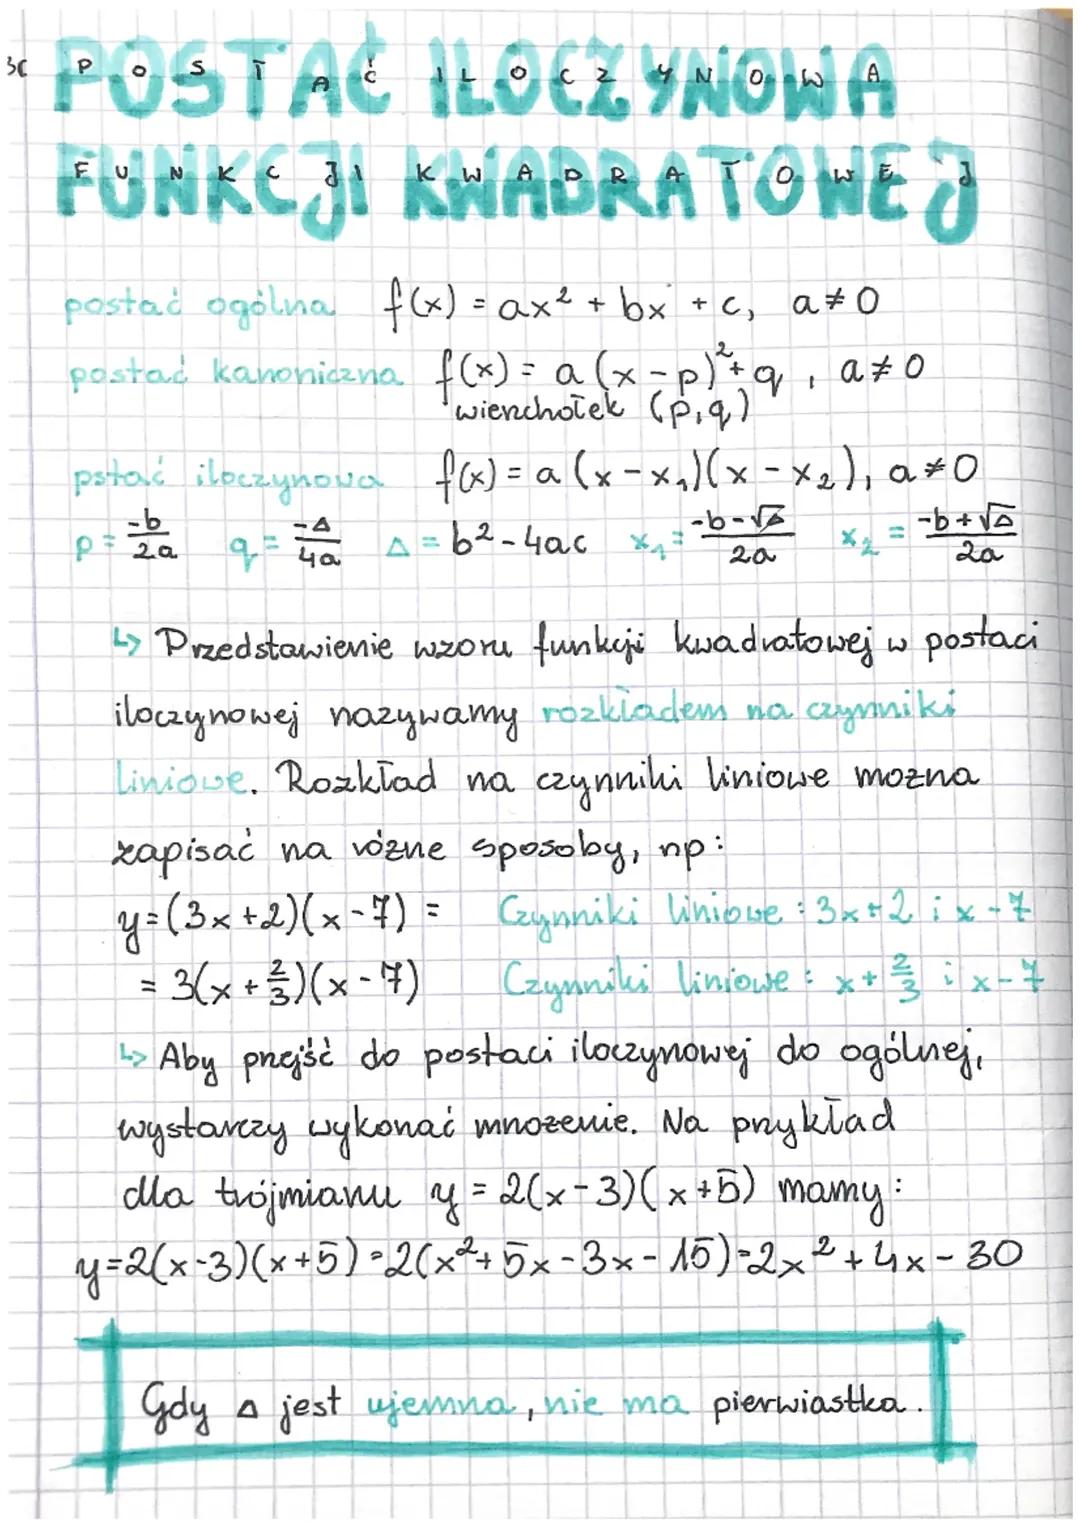 30
POSTAĆ ILOCZYNOWA
FUNKCJI KWADRATOWEJ
postać ogólna f(x) = ax² + bx + c, a ≠ 0
postać kanoniczna f(x) = a(x - p)² + q, a ≠ 0
wierzchołek (p, q)
pstać iloczynowa f(x) = a(x - x₁)(x - x₂), a ≠ 0
p = -b/2a q = -Δ/4a Δ = b² - 4ac x₁ = -b-√Δ/2a x₂ = -b+√Δ/2a
↳ Przedstawienie wzoru funkcji kwadratowej w postaci
iloczynowej nazywamy rozkładem na czynniki
liniowe. Rozkład na czynniki liniowe można
zapisać na różne sposoby, np:
y = (3x + 2)(x - 7) = Czynniki liniowe : 3x + 2 i x - 7
= 3(x + 2/3)(x - 7) Czynniki liniowe : x + 2/3 i x - 7
↳ Aby przejść do postaci iloczynowej do ogólnej,
wystarczy wykonać mnożenie. Na przykład
dla trójmianu y = 2(x - 3)(x + 5) mamy:
y = 2(x - 3)(x + 5) = 2(x² + 5x - 3x - 15) = 2x² + 4x - 30
Gdy Δ jest ujemna, nie ma pierwiastka.